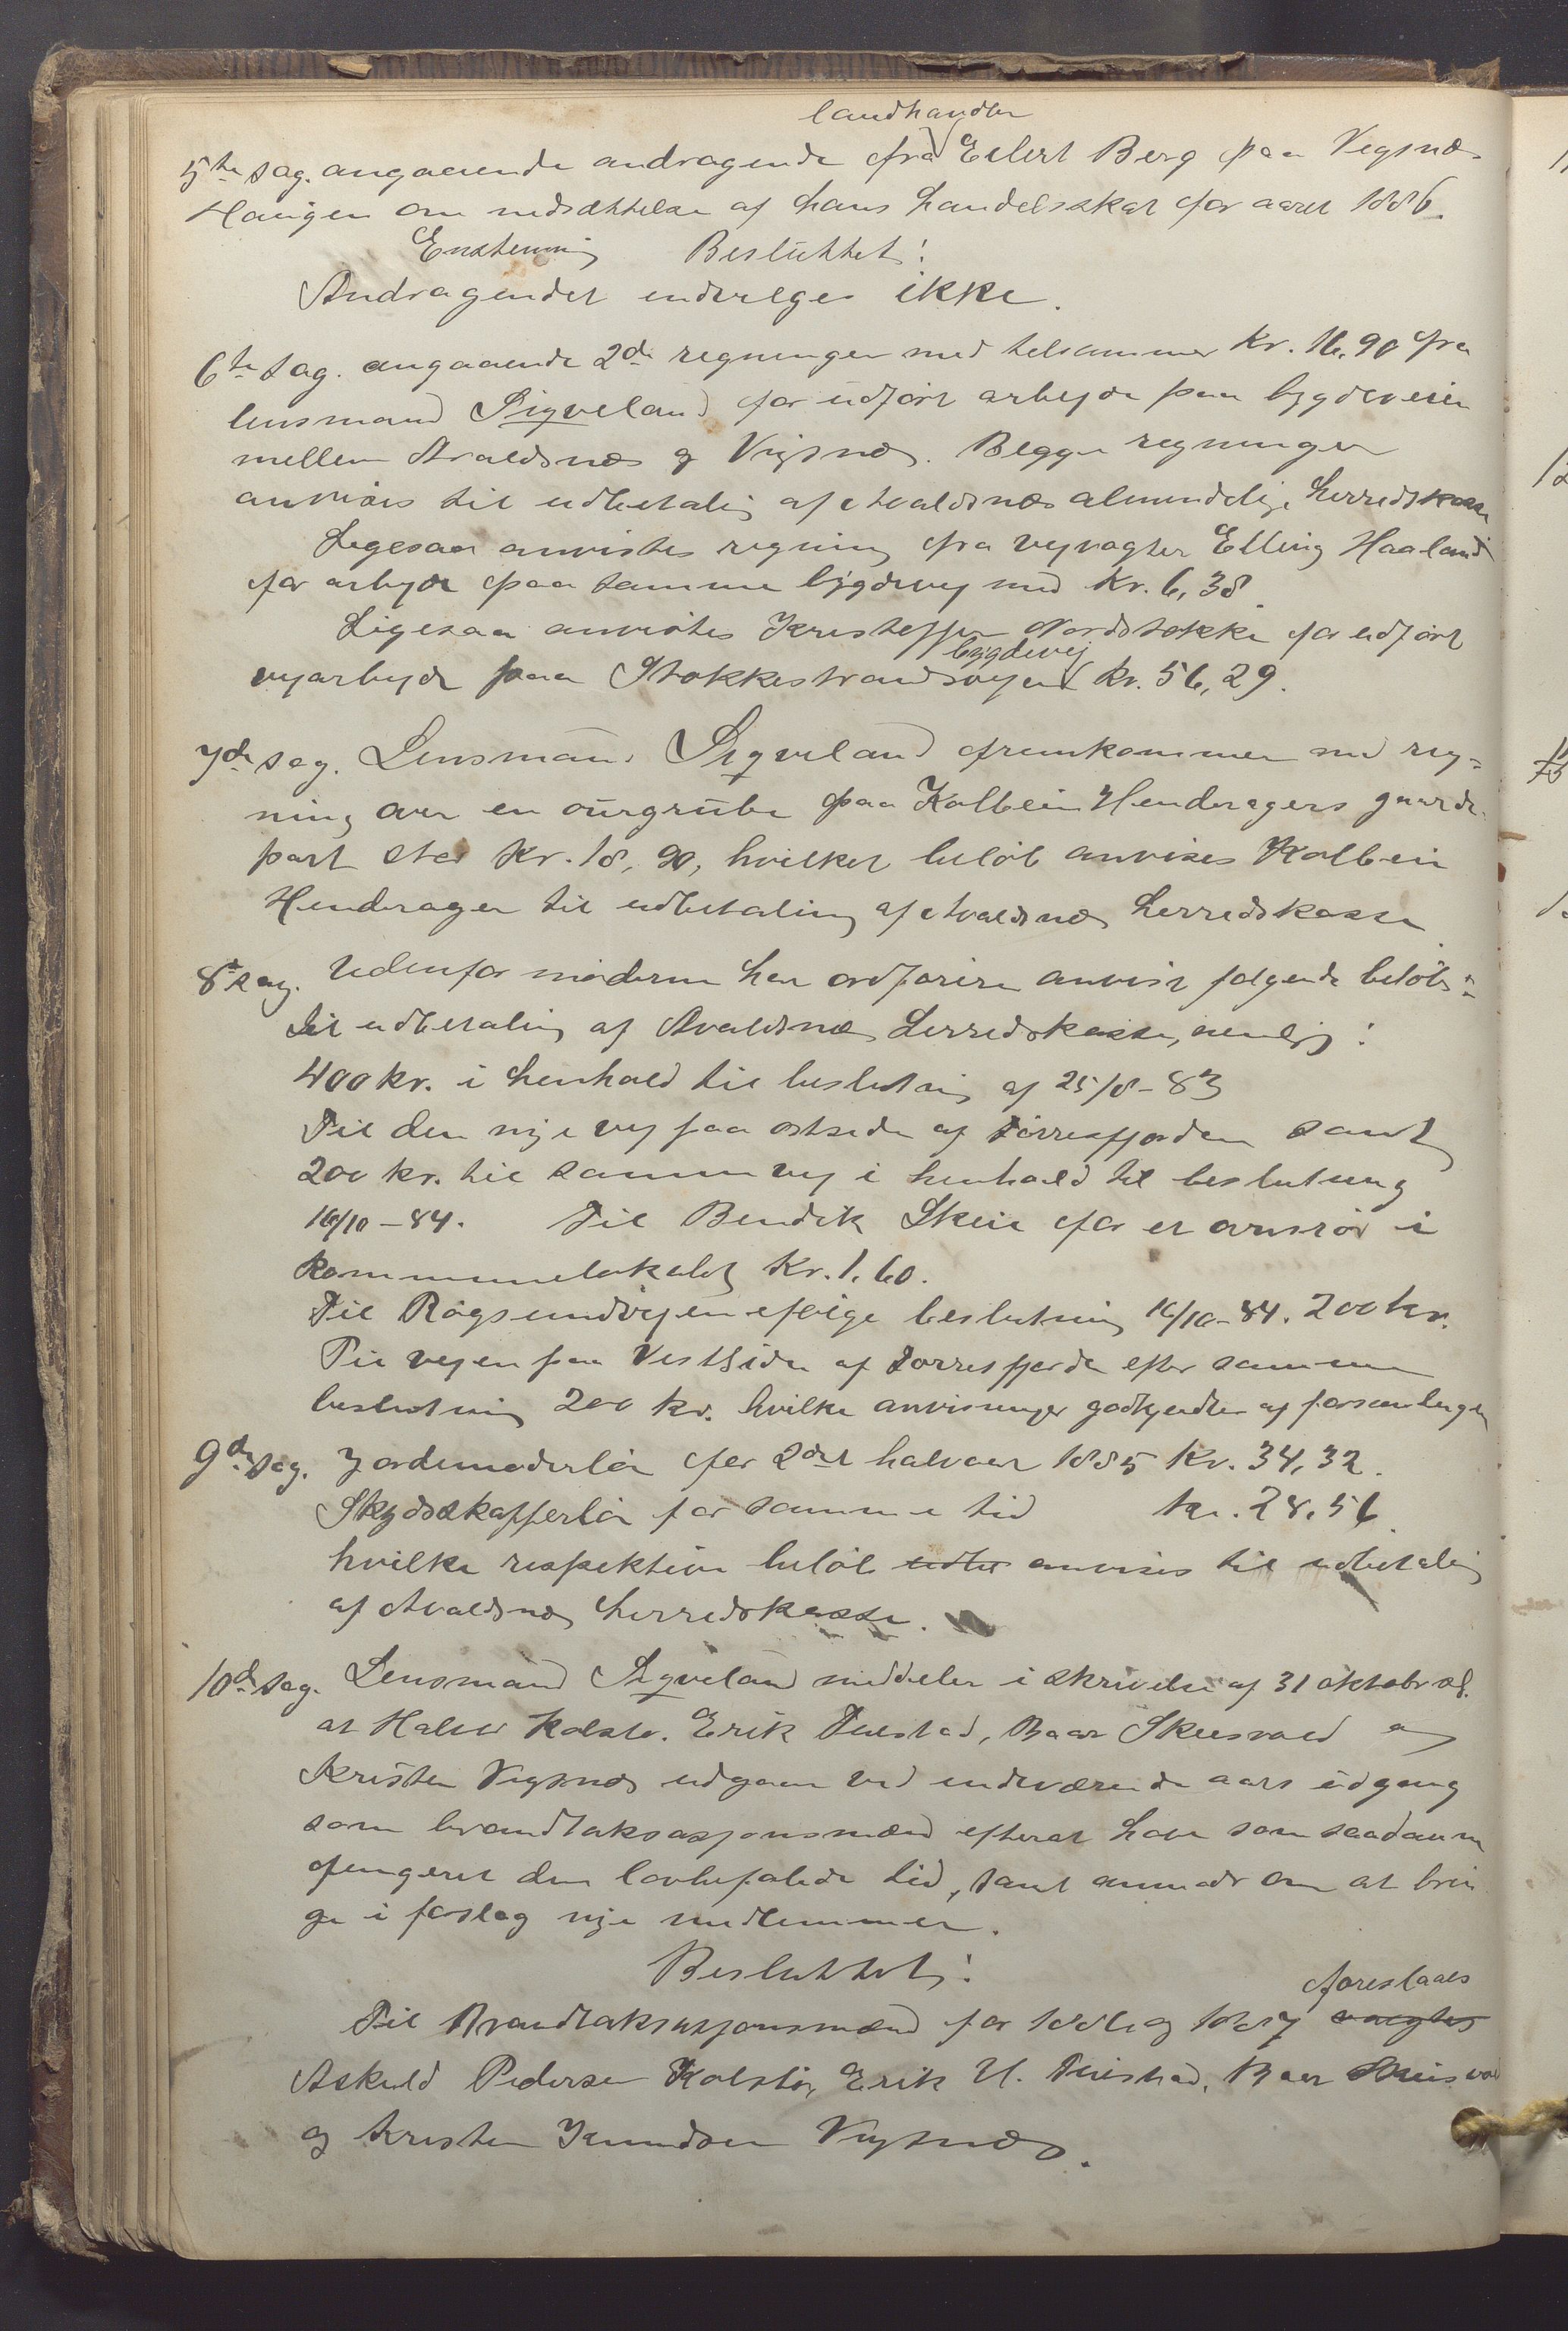 landhandler
5te sag. angaaende andragende fra Eilert Berg paa Vigsnæs
Haugen om nedsættelse af hans handelsskat for aaret 1886.
Enstemmig Besluttet:
Andragendet indvilges ikke.
6te sag. angaaende 2de regninger med tilsammen Kr. 16,90 fra
lensmand Sigveland for udført arbejde paa bygdeveien
mellem Avaldsnæs og Vigsnæs. Begge regninger
anvises til udbetaling af Avaldsnæs almindelige herredskasse
Ligesaa anvistes regning fra vejvogter Elling Haaland
for arbejde paa samme bygdevej med Kr. 6,38.
Ligesaa anvistes Kristoffer Nordstokke for udført
bygdevej
vejarbejde paa Stokkestrandsvejen Kr. 56,29.
7de sag. Lensmand Sigveland fremkommer med reg-
ning over en ourgrube paa Kolbein Hendragers gaards-
part stor Kr. 18,90, hvilket beløb anvises Kolbein
Hendrager til udbetaling af Avaldsnæs herredskasse
8de sag. Udenfor møderne har ordføreren anvist følgende beløb
til udbetaling af Avaldsnæs herredskasse, nemlig:
400 kr. i henhold til beslutning af 25/8-83
Til den nye vej paa østside af Førresfjorden samt
200 kr. til samme vej i henhold til beslutning
16/10-84. Til Bendik Skeie for et ovnsrør i
kommunelokalet Kr. 1,60.
Til Røgsundvejen ifølge beslutning 16/10-84. 200 kr.
Til vejen paa Vestsiden af Førresfjorde efter samme
beslutning 200 kr. hvilke anvisninger godkjendtes af forsamlingen
9de sag. Jordemoderløn for 2det halvaar 1885 Kr. 34,32.
Skydsskafferløn for samme tid kr. 28,56.
hvilke respektive beløb udbe anvises til udbetaling
af Avaldsnæs herredskasse.
10de sag. Lensmand Sigveland meddeler i skrivelse af 31 oktobr sl.
at Halvor Kolstø. Erik Tuestad, Baar Skeisvold og
Kristen Vigsnæs udgaar ved indeværende aars udgang
som brandtaksasjonsmænd efterat have som saadanne
fungeret den lovbefalede tid, samt anmoder om at brin
ge i forslag nye medlemmer.
Besluttet:
foreslaaes
Til Brandtaksasjonsmænd for 1886 og 1887 valgtes
Askuld Pedersen Kolstø, Erik H. Tuestad, Baar Skeisvold
og Kristen Knudsen Vigsnæs.